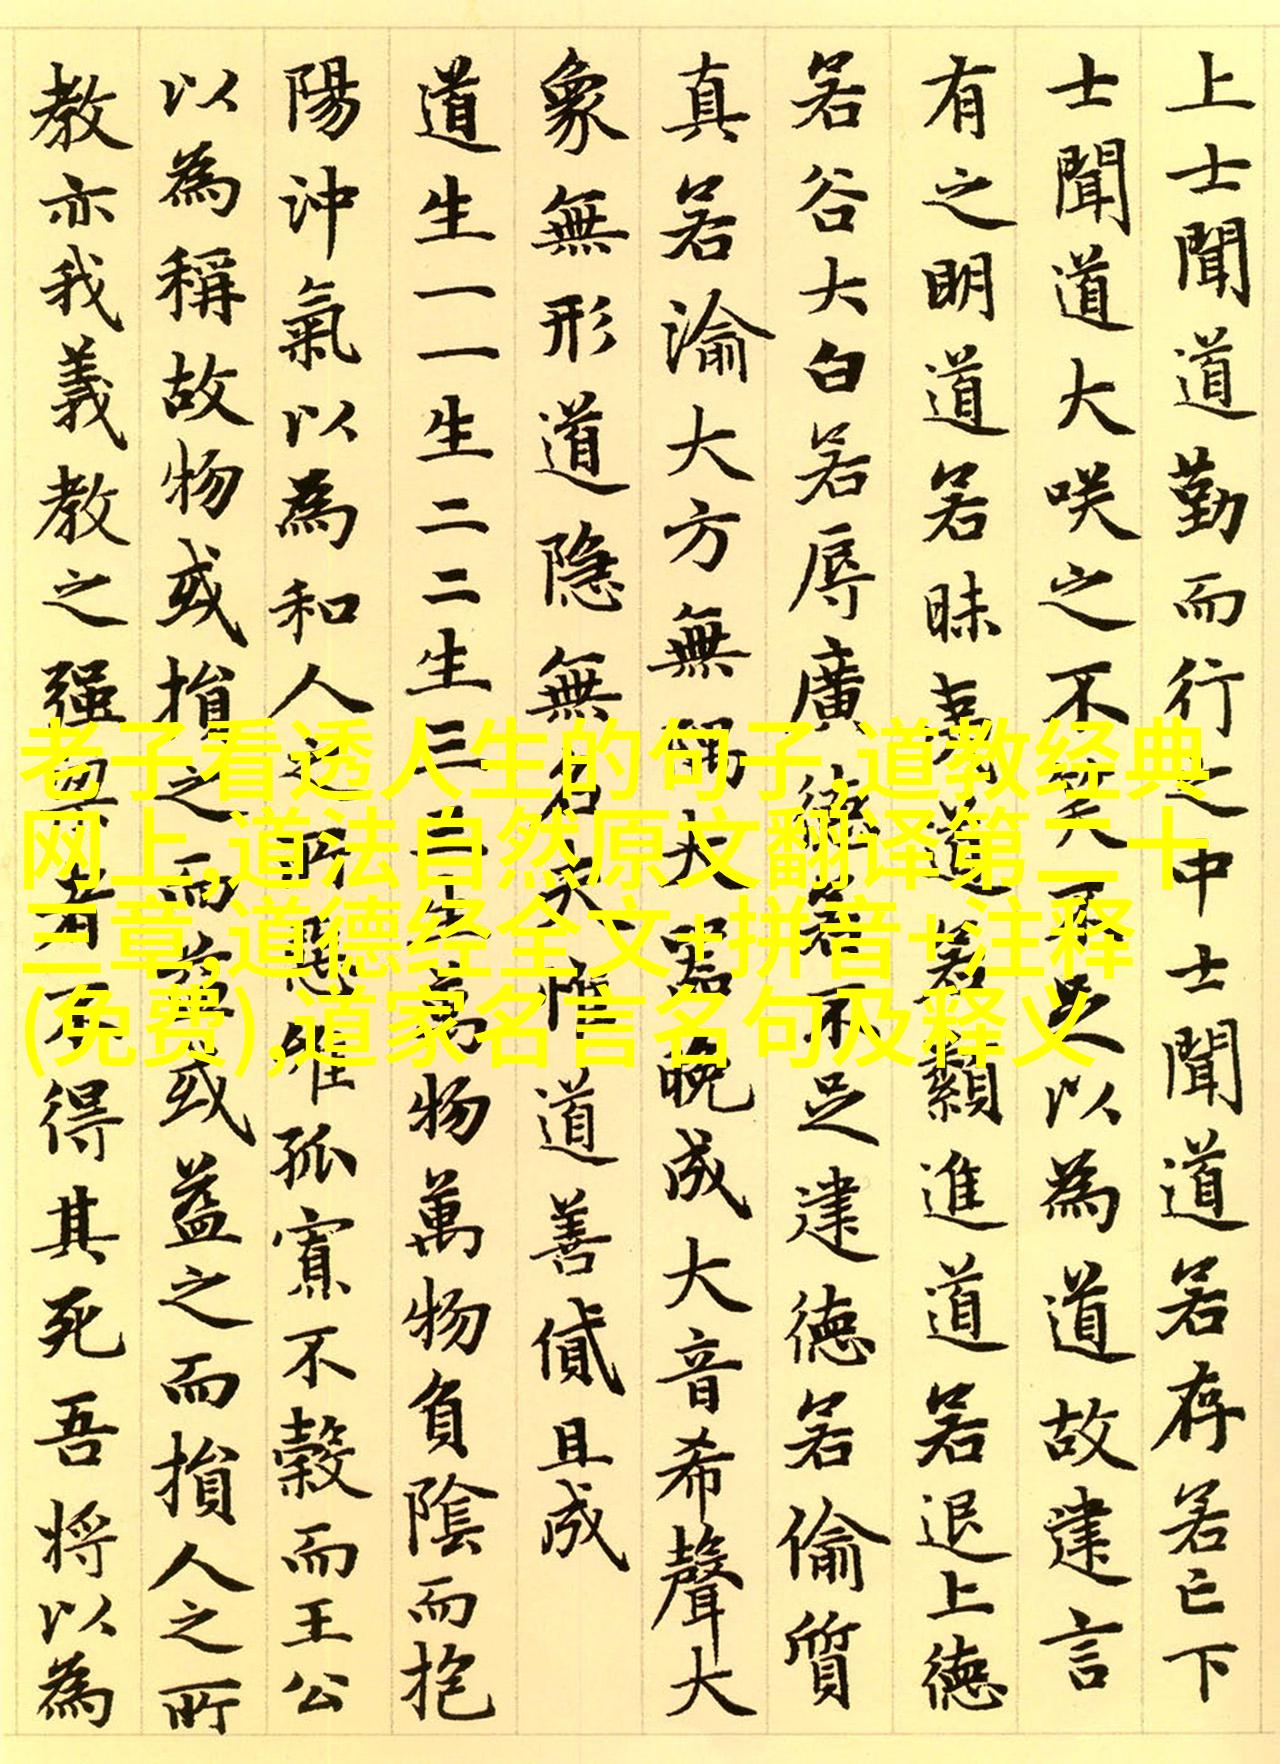 上士聞道勤而行之中士聞道若存若亡下
士聞道大咲之不笑不足以為道故建言
有之明道若昧夷道若纇進道若退上德
若谷大白若辱廣德若不足建德若偷質
真若渝大方無隅大器晚成大音希聲大
象無形道隐無名夫惟道善貸且成
道生一一生二二生三三生萬物萬物負陰而抱
陽沖氣以為和人之所惡惟孤寡不穀而王公
以為稱故物或損之而益或益之而損人之所
教亦我義教之强梁者不得其死吾將以為
老子看透人生的句子,道教经典
网上,道法自然原文翻译第二十
三章,道德经全文+拼音+注释
(免费),道家名言名句及释义